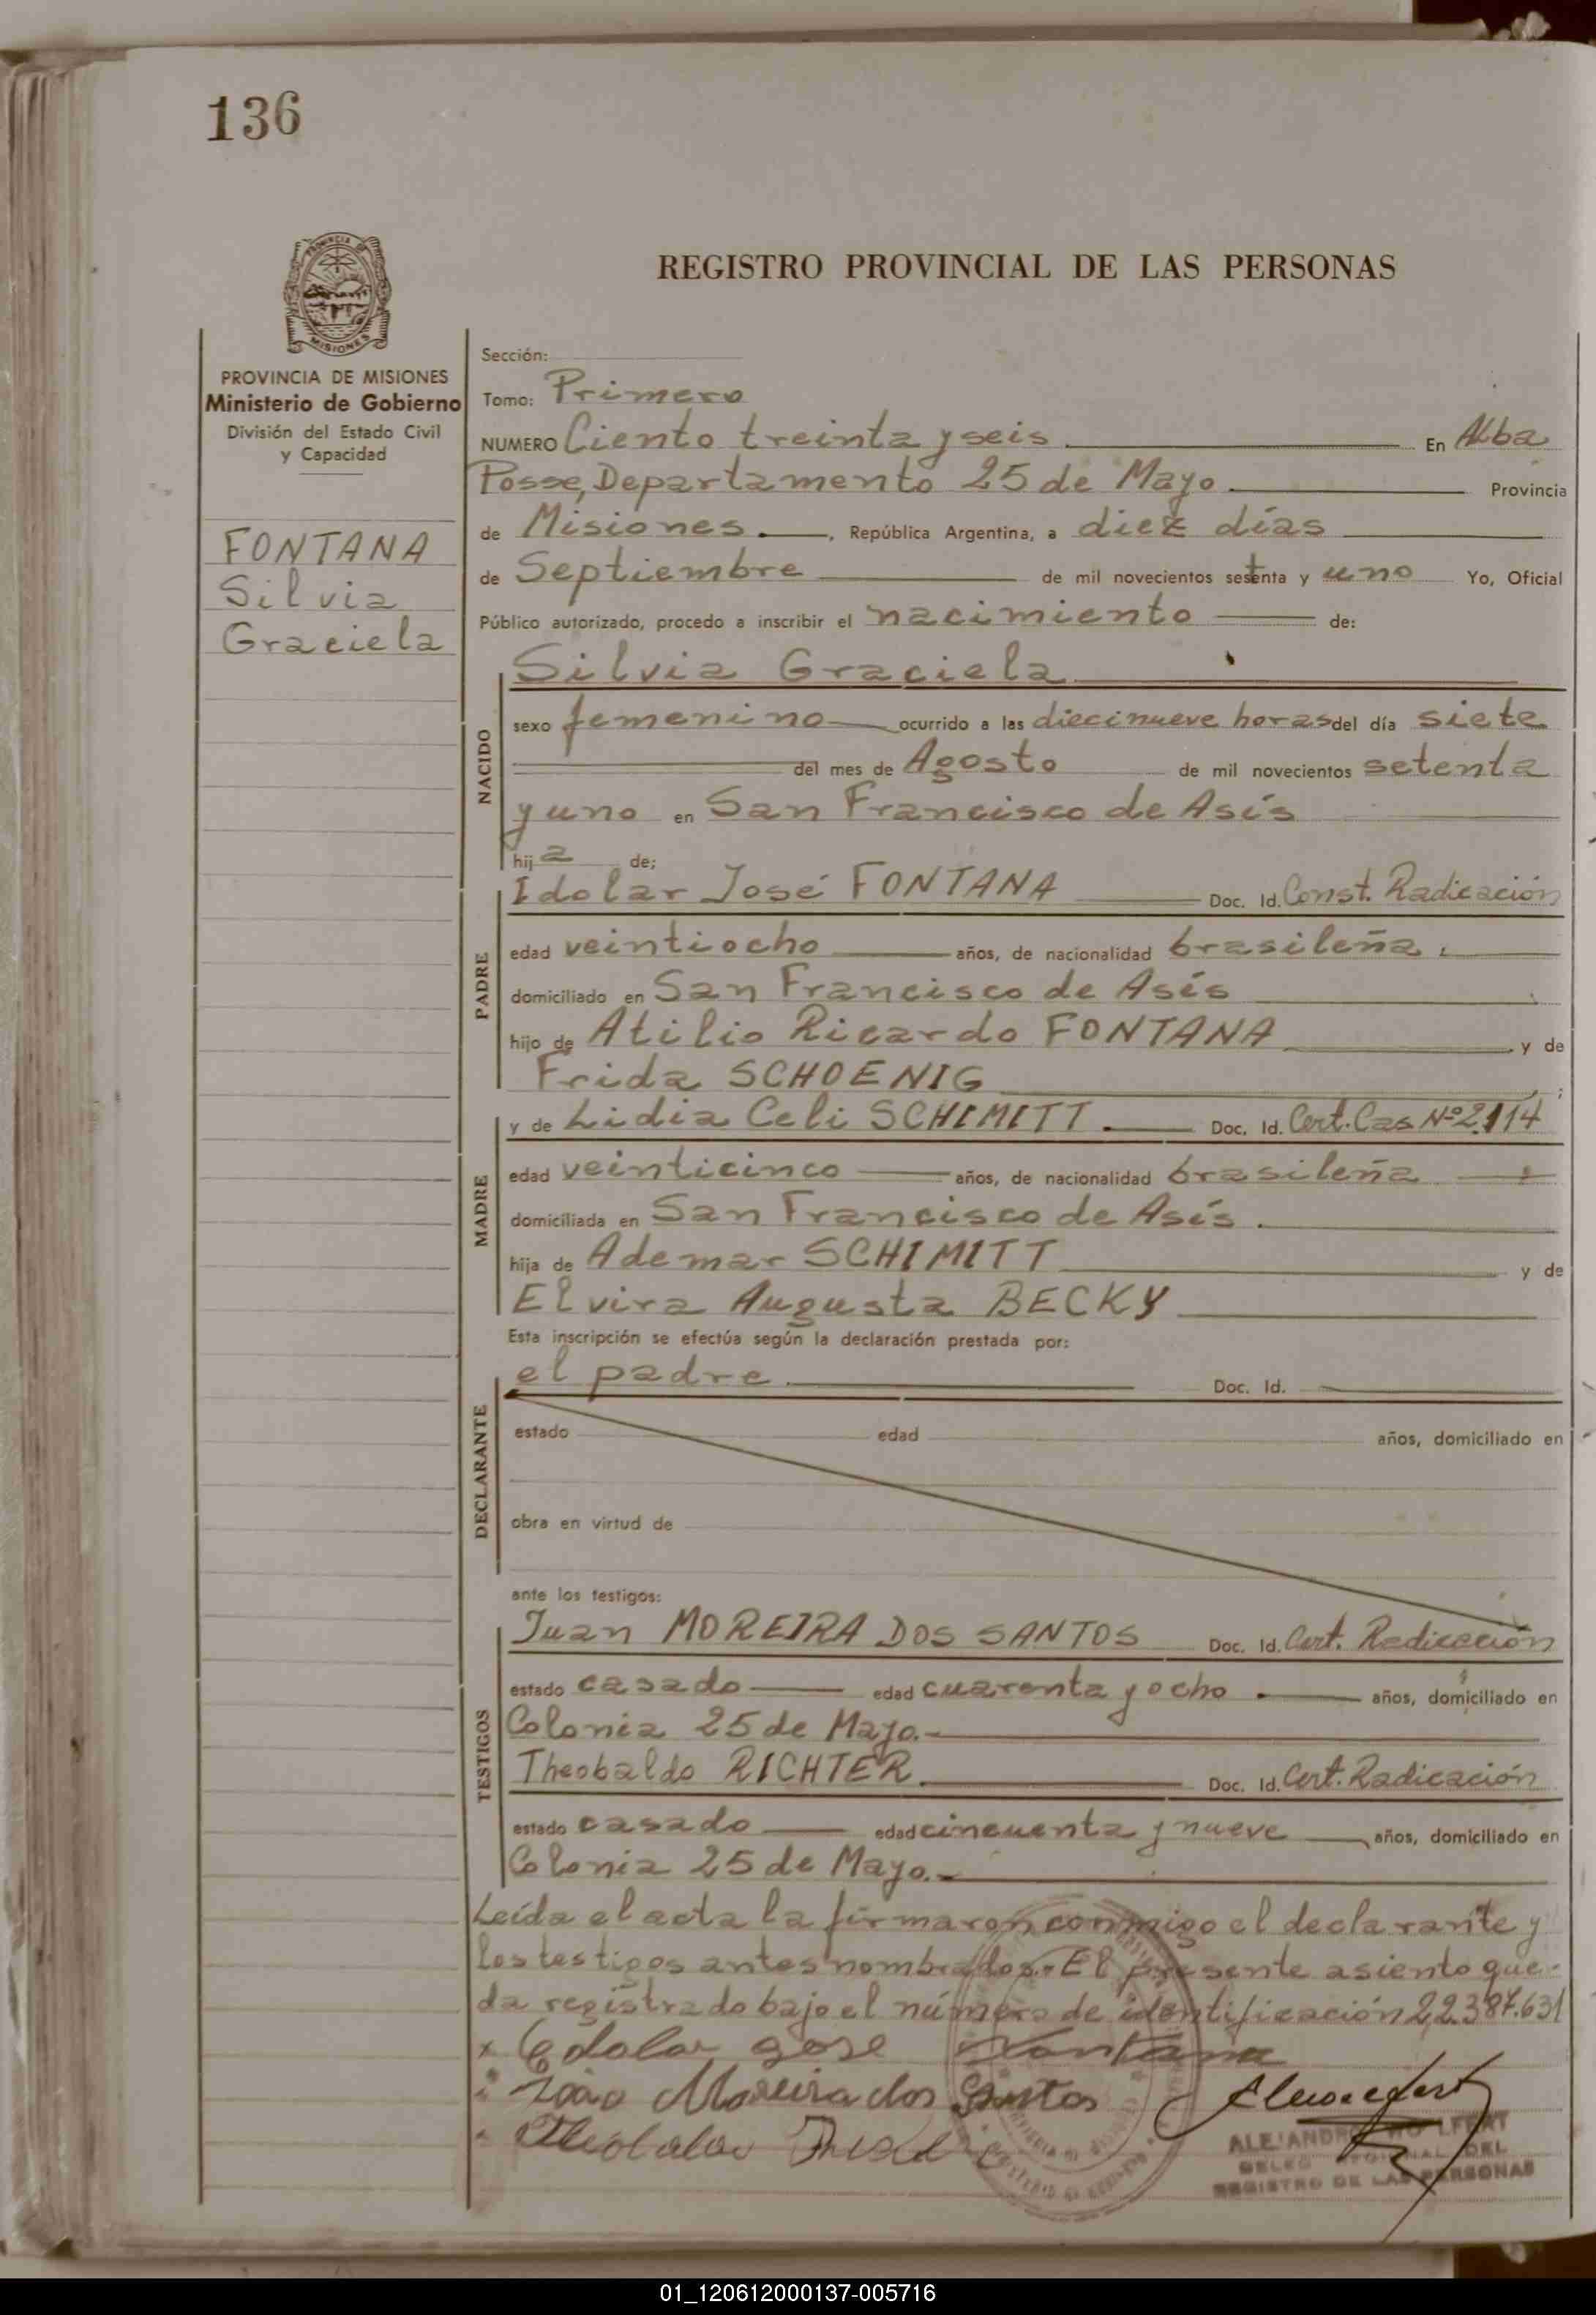 136
PROVINCIA DE MISIONES
MISIONES
PROVINCIA DE MISIONES
Ministerio de Gobierno
División del Estado Civil
y Capacidad
FONTANA
Silvia
Graciela
REGISTRO PROVINCIAL DE LAS PERSONAS
Sección:
Tomo: Primero
NUMERO Ciento treinta y seis En Alba
Posse, Departamento 25 de Mayo Provincia
de Misiones, República Argentina, a diez días
de Septiembre de mil novecientos setenta y uno Yo, Oficial
Público autorizado, procedo a inscribir el nacimiento de:
Silvia Graciela
NACIDO
sexo femenino ocurrido a las diecinueve horas del día siete
del mes de Agosto de mil novecientos setenta
y uno en San Francisco de Asís
hija de;
PADRE
Idolar José FONTANA Doc. Id. Const. Radicación
edad veintiocho años, de nacionalidad brasileña
domiciliado en San Francisco de Asís
hijo de Atilio Ricardo FONTANA y de
Frida SCHOENIG
MADRE
y de Lidia Celi SCHIMITT. Doc. Id. Cert. Cas Nº 2.114
edad veinticinco años, de nacionalidad brasileña
domiciliada en San Francisco de Asís.
hija de Ademar SCHIMITT y de
Elvira Augusta BECKY
Esta inscripción se efectúa según la declaración prestada por:
DECLARANTE
el padre. Doc. Id.
estado edad años, domiciliado en
obra en virtud de
ante los testigos:
TESTIGOS
Juan MOREIRA DOS SANTOS Doc. Id. Cert. Radicación
estado casado edad cuarenta y ocho años, domiciliado en
Colonia 25 de Mayo.-
Theobaldo RICHTER Doc. Id. Cert. Radicación
estado casado edad cincuenta y nueve años, domiciliado en
Colonia 25 de Mayo.-
Leída el acta la firmaron conmigo el declarante y
los testigos antes nombrados.- El presente asiento que-
da registrado bajo el número de identificación 22.387.631
x Edolar Jose Fontana
João Moreira dos Santos
REGISTRO DE LAS PERSONAS
01_120612000137-005716